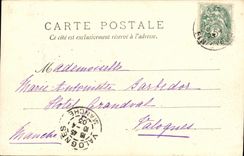 CARTE POSTALE
Ce côté est exclusivement réservé à l'adresse.
Mademoiselle
Marie Antoinette
Hôtel Grandval
Valognes
Manche
VALOGNES
MANCHE